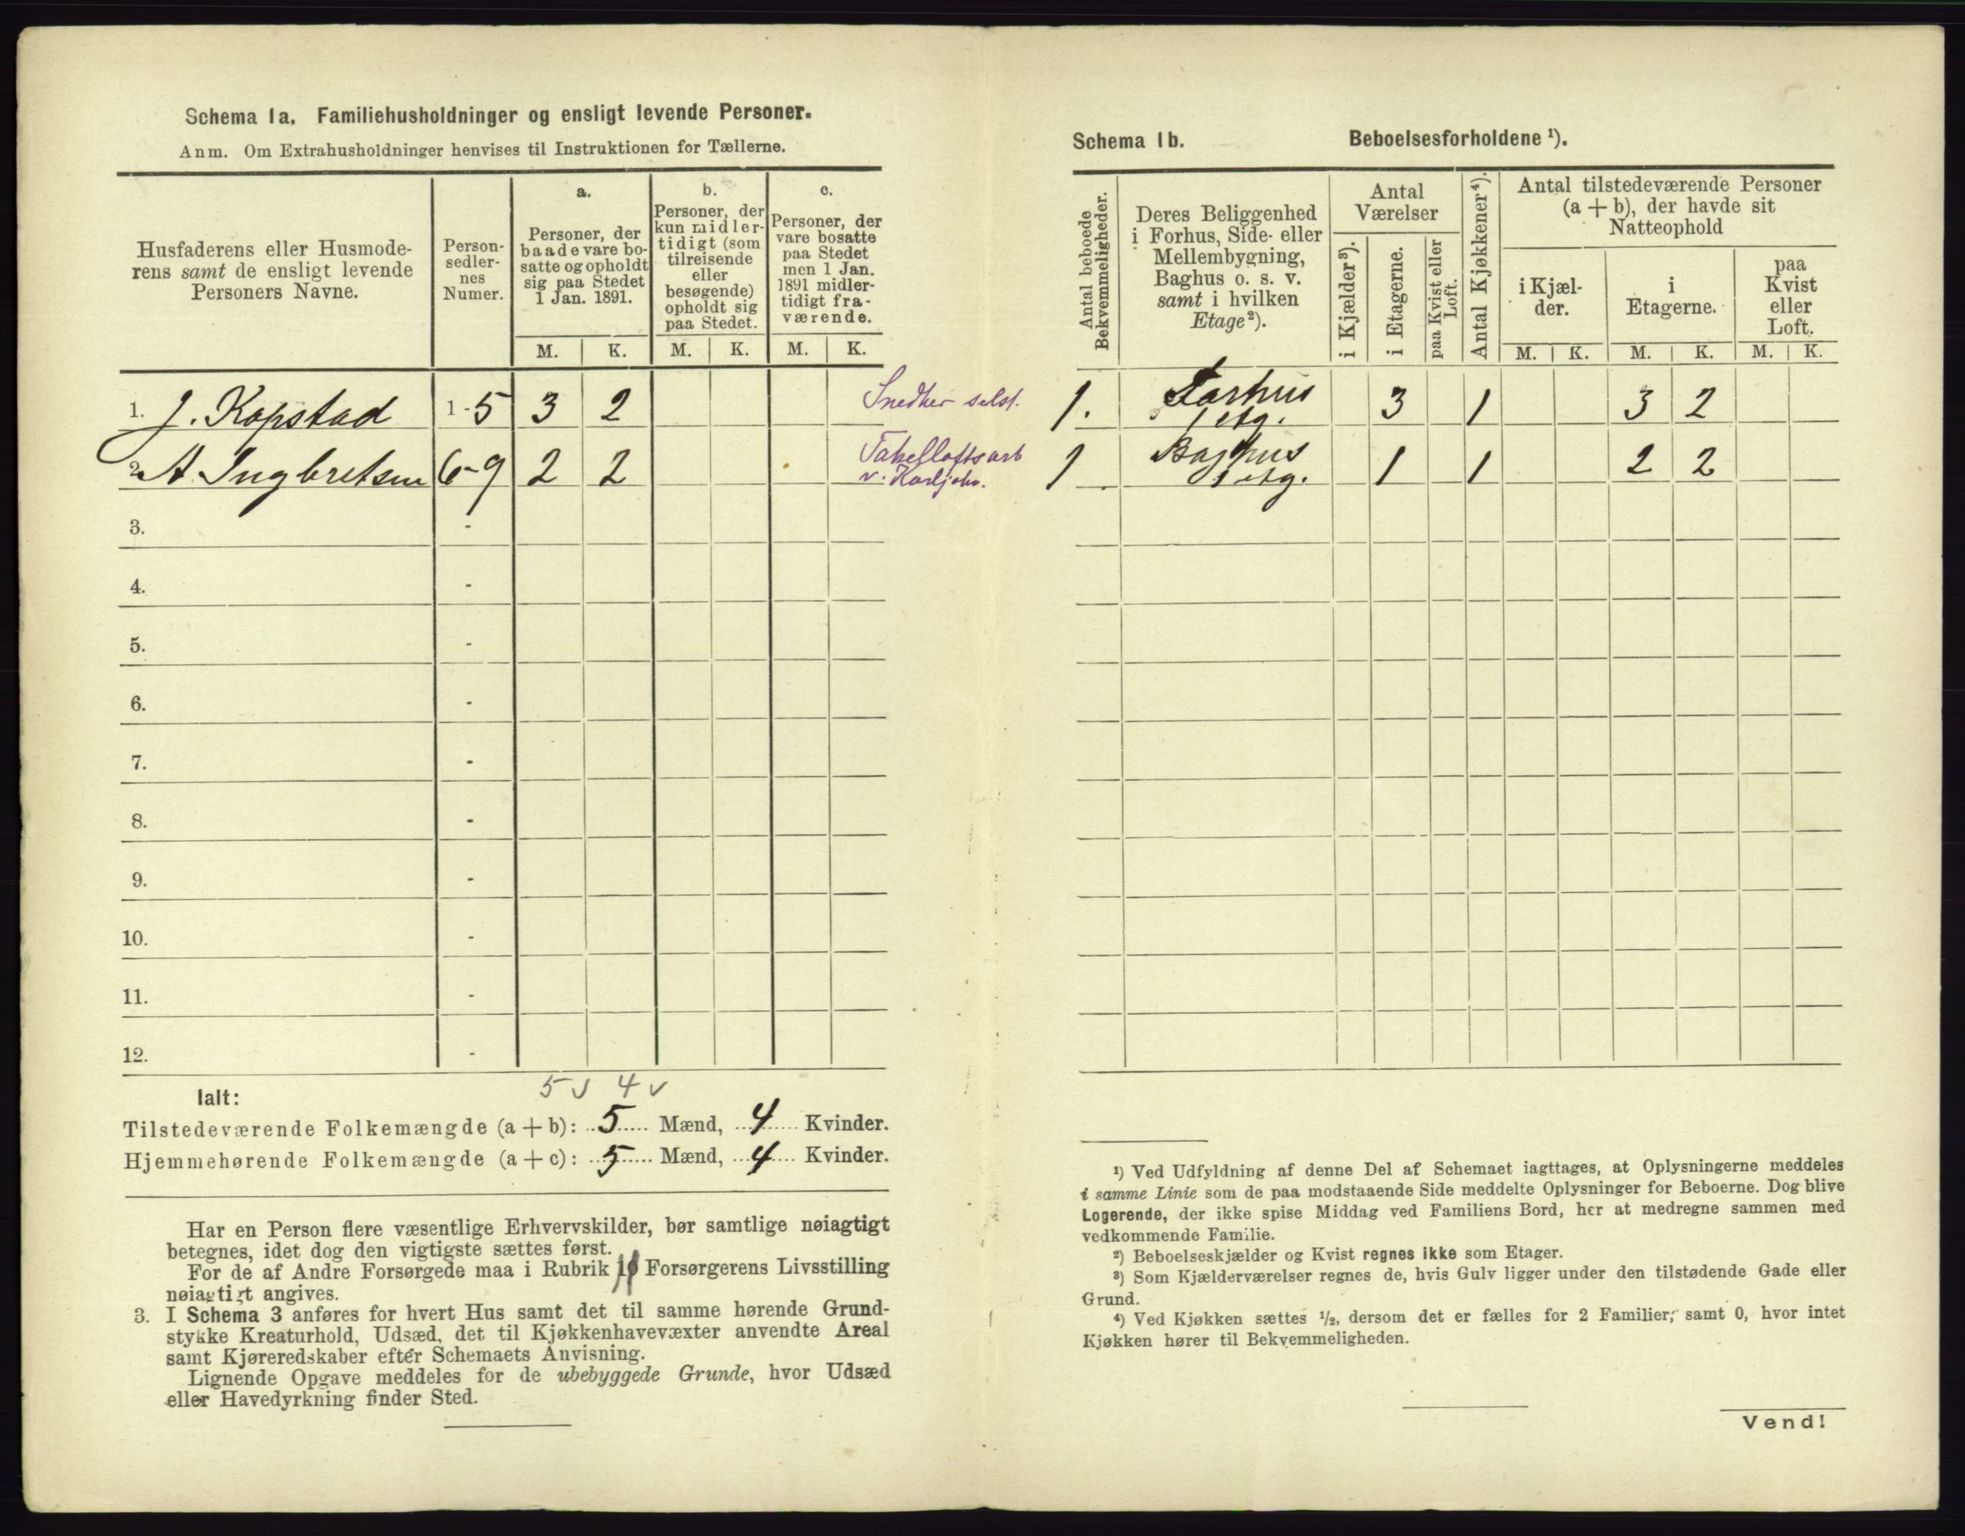 Schema 1a. Familiehusholdninger og ensligt levende Personer.
Anm. Om Extrahusholdninger henvises til Instruktionen for Tællerne.
Husfaderens eller Husmode-
rens samt de ensligt levende
Personers Navne.
Person-
sedler-
nes
Numer.
a.
Personer, der
baade vare bo-
satte og opholdt
sig paa Stedet
1 Jan. 1891.
b.
Personer, der
kun midler-
tidigt (som
tilreisende
eller
besøgende)
opholdt sig
paa Stedet.
c.
Personer, der
vare bosatte
paa Stedet
men 1 Jan.
1891 midler-
tidigt fra-
værende.
M. K. M. K. M. K.
1. J. Kopstad 1-5 3 2 Snedker selst.
2. A. Ingbretsen 6-9 2 2 Takelloftsarb
v. Karljohv.
3. -
4. -
5. -
6. -
7. -
8. -
9. -
10. -
11. -
12. -
5 v 4 v
Ialt:
Tilstedeværende Folkemængde (a + b): 5 Mænd, 4 Kvinder.
Hjemmehørende Folkemængde (a + c): 5 Mænd, 4 Kvinder.
Har en Person flere væsentlige Erhvervskilder, bør samtlige nøiagtigt
betegnes, idet dog den vigtigste sættes først.
For de af Andre Forsørgede maa i Rubrik 10 Forsørgerens Livsstilling
nøiagtigt angives.
3. I Schema 3 anføres for hvert Hus samt det til samme hørende Grund-
stykke Kreaturhold, Udsæd, det til Kjøkkenhavevæxter anvendte Areal
samt Kjøreredskaber efter Schemaets Anvisning.
Lignende Opgave meddeles for de ubebyggede Grunde, hvor Udsæd
eller Havedyrkning finder Sted.
Schema 1b. Beboelsesforholdene ¹).
Antal beboede
Bekvemmeligheder.
Deres Beliggenhed
i Forhus, Side- eller
Mellembygning,
Baghus o. s. v.
samt i hvilken
Etage²).
Antal
Værelser
i Kjælder³).
i Etagerne.
paa Kvist eller
Loft.
Antal Kjøkkener⁴).
Antal tilstedeværende Personer
(a + b), der havde sit
Natteophold
i Kjæl-
der.
i
Etagerne.
paa
Kvist
eller
Loft.
M. K. M. K. M. K.
1. Forhus 3 1 3 2
1 etg.
1 Baghus 1 1 2 2
1 etg.
¹) Ved Udfyldning af denne Del af Schemaet iagttages, at Oplysningerne meddeles
i samme Linie som de paa modstaaende Side meddelte Oplysninger for Beboerne. Dog blive
Logerende, der ikke spise Middag ved Familiens Bord, her at medregne sammen med
vedkommende Familie.
²) Beboelseskjælder og Kvist regnes ikke som Etager.
³) Som Kjælderværelser regnes de, hvis Gulv ligger under den tilstødende Gade eller
Grund.
⁴) Ved Kjøkken sættes ½, dersom det er fælles for 2 Familier, samt 0, hvor intet
Kjøkken hører til Bekvemmeligheden.
Vend!